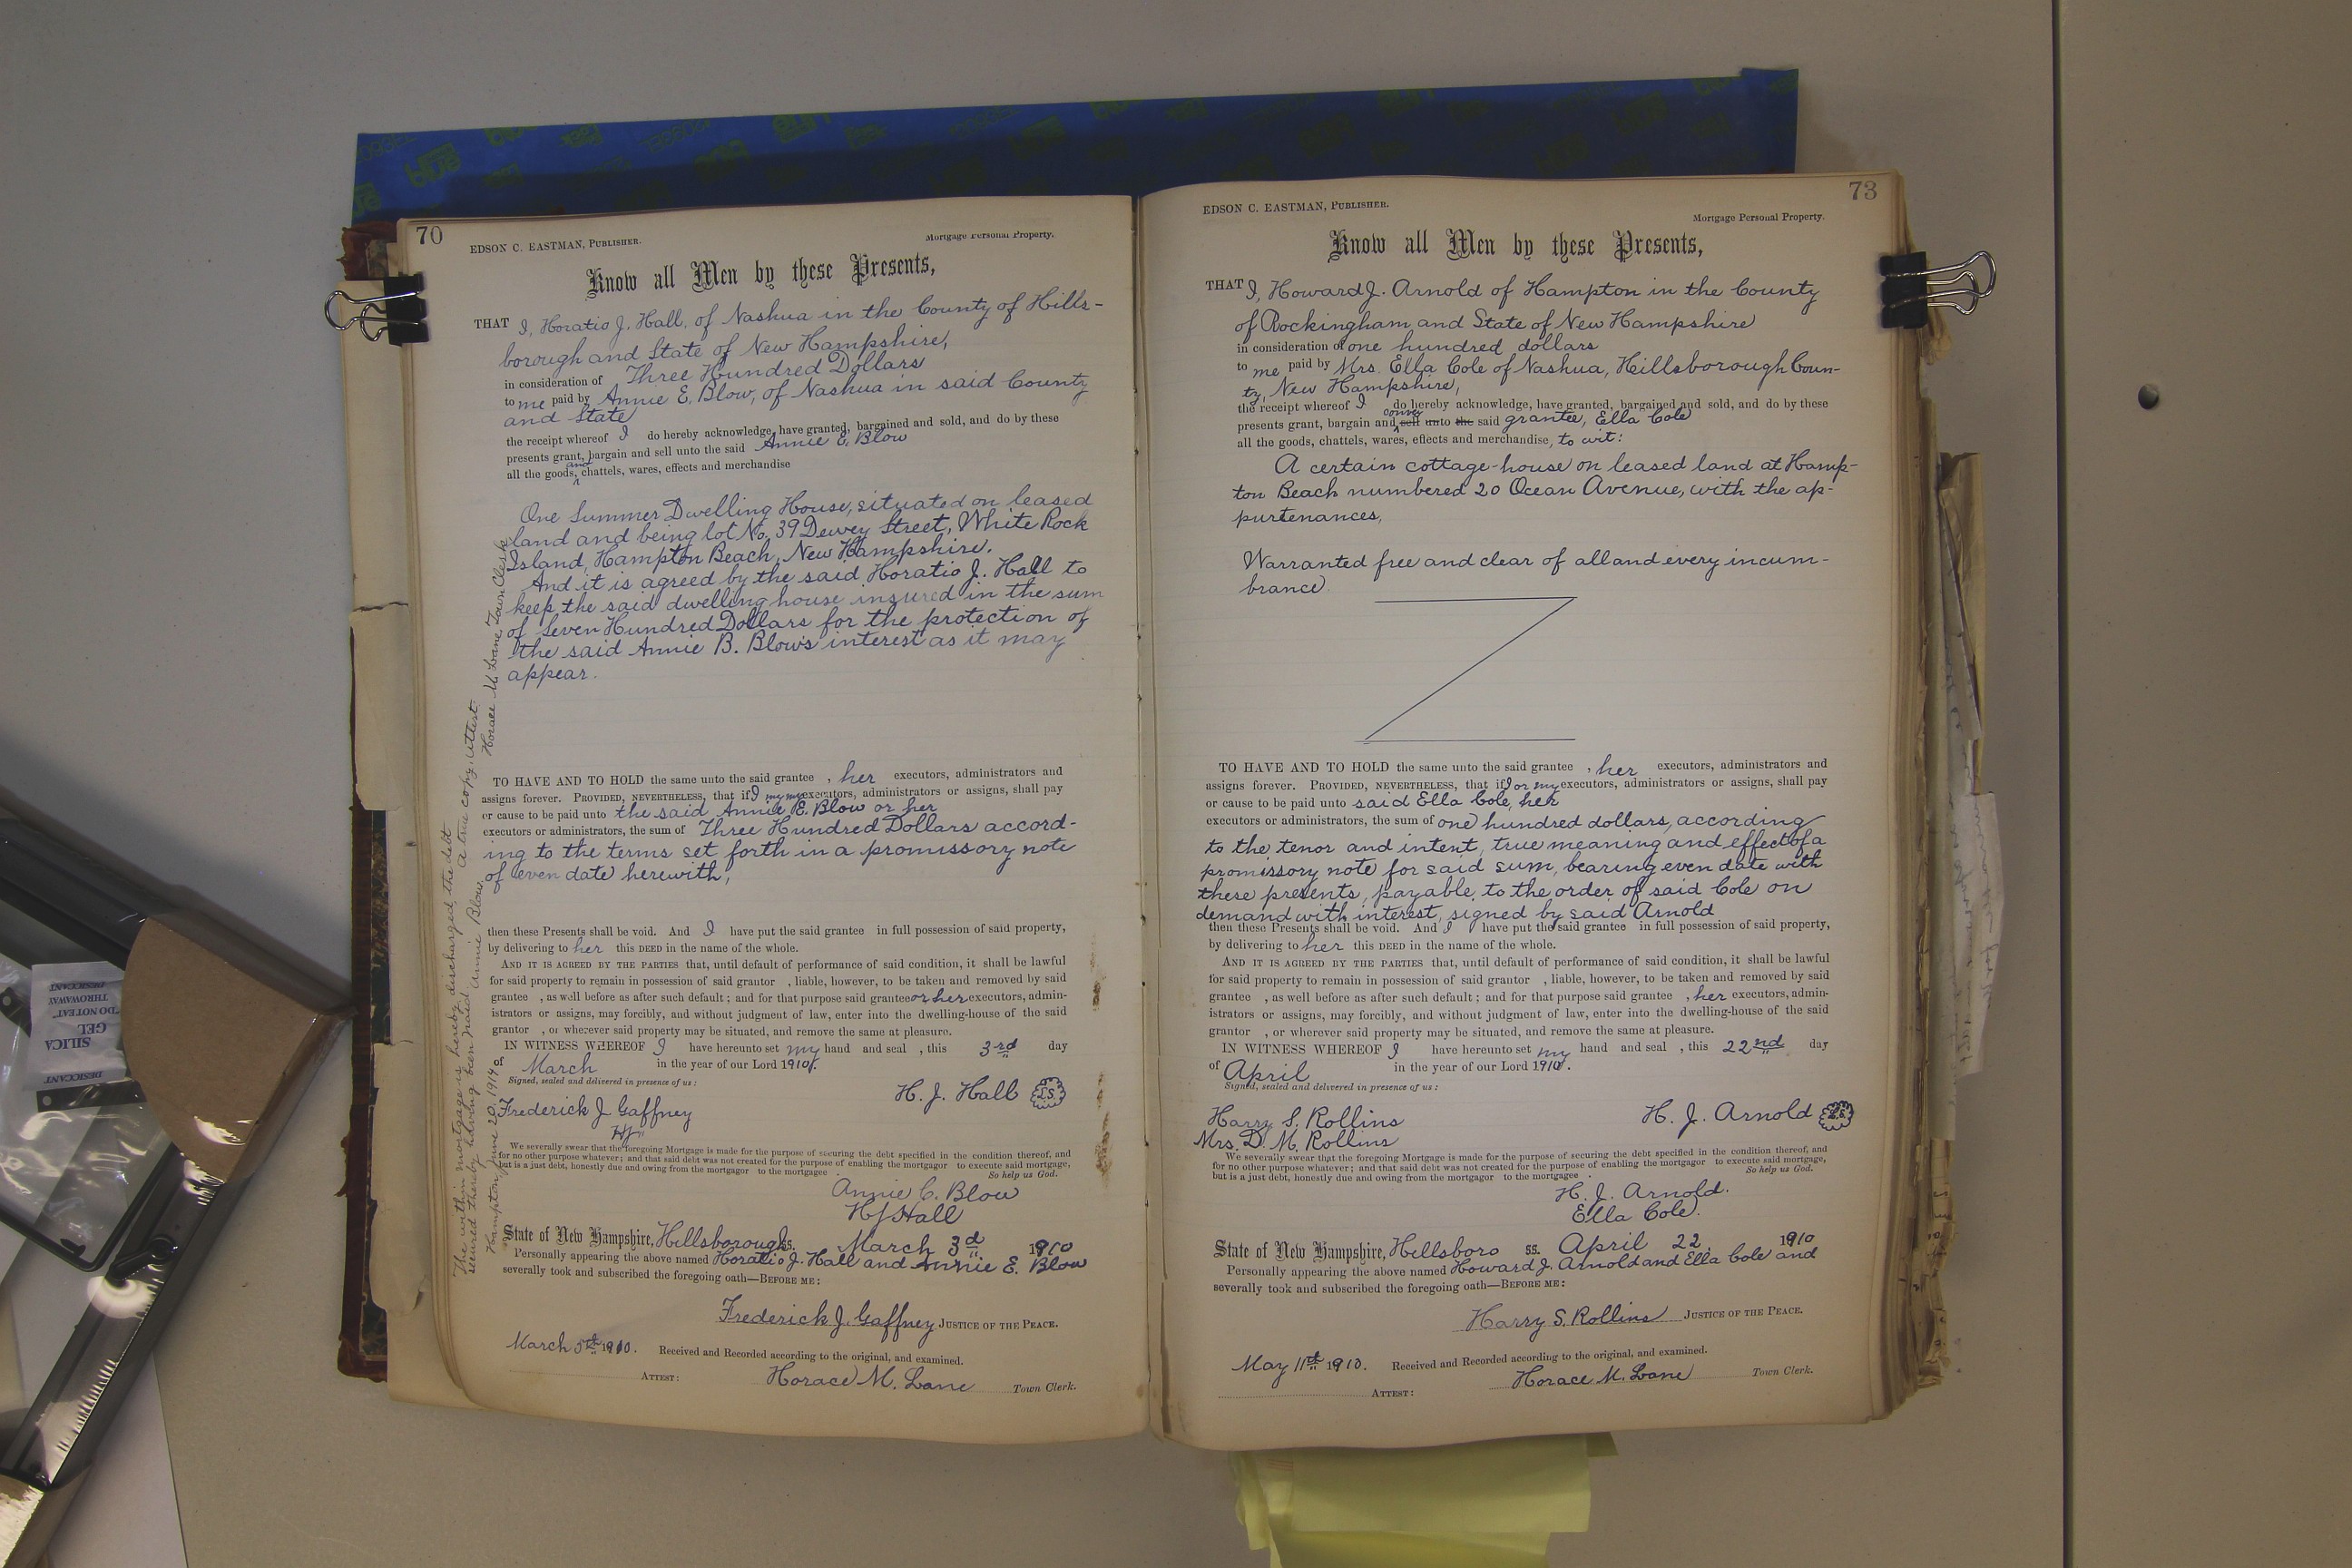 70
EDSON C. EASTMAN, PUBLISHER.
Mortgage Personal Property.
Know all Men by these Presents,
THAT I, Horatio J. Hall, of Nashua in the County of Hills-
borough and State of New Hampshire,
in consideration of Three Hundred Dollars
to me paid by Annie E. Blow, of Nashua in said County
and State
the receipt whereof I do hereby acknowledge, have granted, bargained and sold, and do by these
presents grant, bargain and sell unto the said Annie E. Blow
all the goods, and chattels, wares, effects and merchandise
One Summer Dwelling House, situated on leased
land and being lot No. 39 Dewey Street, White Rock
Island, Hampton Beach, New Hampshire.
And it is agreed by the said Horatio J. Hall to
keep the said dwelling house insured in the sum
of Seven Hundred Dollars for the protection of
the said Annie B. Blow's interest as it may
appear.
TO HAVE AND TO HOLD the same unto the said grantee , her executors, administrators and
assigns forever. PROVIDED, NEVERTHELESS, that if I my my executors, administrators or assigns, shall pay
or cause to be paid unto the said Annie E. Blow or her
executors or administrators, the sum of Three Hundred Dollars accord-
ing to the terms set forth in a promissory note
of even date herewith,
then these Presents shall be void. And I have put the said grantee in full possession of said property,
by delivering to her this DEED in the name of the whole.
AND IT IS AGREED BY THE PARTIES that, until default of performance of said condition, it shall be lawful
for said property to remain in possession of said grantor , liable, however, to be taken and removed by said
grantee , as well before as after such default; and for that purpose said grantee or her executors, admin-
istrators or assigns, may forcibly, and without judgment of law, enter into the dwelling-house of the said
grantor , or wherever said property may be situated, and remove the same at pleasure.
IN WITNESS WHEREOF I have hereunto set my hand and seal , this 3rd day
of March in the year of our Lord 1910.
Signed, sealed and delivered in presence of us:
H. J. Hall L.S.
Frederick J Gaffney
We severally swear that the foregoing Mortgage is made for the purpose of securing the debt specified in the condition thereof, and
for no other purpose whatever; and that said debt was not created for the purpose of enabling the mortgagor to execute said mortgage,
but is a just debt, honestly due and owing from the mortgagor to the mortgagee .
So help us God.
Annie C. Blow
H J Hall
State of New Hampshire, Hillsborough ss. March 3d 1910
Personally appearing the above named Horatio J. Hall and Annie E. Blow
severally took and subscribed the foregoing oath—BEFORE ME:
Frederick J. Gaffney JUSTICE OF THE PEACE.
March 5th 1910. Received and Recorded according to the original, and examined.
ATTEST: Horace M. Lane Town Clerk.
The within mortgage is hereby discharged, the debt
secured thereby having been paid. Annie Blow.
Hampton, June 20, 1914 A true copy, attest:
Horace M. Lane, Town Clerk
73
EDSON C. EASTMAN, PUBLISHER.
Mortgage Personal Property.
Know all Men by these Presents,
THAT I, Howard J. Arnold of Hampton in the County
of Rockingham and State of New Hampshire
in consideration of one hundred dollars
to me paid by Mrs. Ella Cole of Nashua, Hillsborough Coun-
ty, New Hampshire,
the receipt whereof I do hereby acknowledge, have granted, bargained and sold, and do by these
presents grant, bargain and convey sell unto the said grantee, Ella Cole
all the goods, chattels, wares, effects and merchandise, to wit:
A certain cottage-house on leased land at Hamp-
ton Beach numbered 20 Ocean Avenue, with the ap-
purtenances,
Warranted free and clear of all and every incum-
brance
TO HAVE AND TO HOLD the same unto the said grantee , her executors, administrators and
assigns forever. PROVIDED, NEVERTHELESS, that if I or my executors, administrators or assigns, shall pay
or cause to be paid unto said Ella Cole, her
executors or administrators, the sum of one hundred dollars, according
to the tenor and intent, true meaning and effect of a
promissory note for said sum, bearing even date with
these presents, payable to the order of said Cole on
demand with interest, signed by said Arnold
then these Presents shall be void. And I have put the said grantee in full possession of said property,
by delivering to her this DEED in the name of the whole.
AND IT IS AGREED BY THE PARTIES that, until default of performance of said condition, it shall be lawful
for said property to remain in possession of said grantor , liable, however, to be taken and removed by said
grantee , as well before as after such default; and for that purpose said grantee , her executors, admin-
istrators or assigns, may forcibly, and without judgment of law, enter into the dwelling-house of the said
grantor , or wherever said property may be situated, and remove the same at pleasure.
IN WITNESS WHEREOF I have hereunto set my hand and seal , this 22nd day
of April in the year of our Lord 1910.
Signed, sealed and delivered in presence of us:
Harry S. Rollins
H. J. Arnold L.S.
Mrs. D. M. Rollins
We severally swear that the foregoing Mortgage is made for the purpose of securing the debt specified in the condition thereof, and
for no other purpose whatever; and that said debt was not created for the purpose of enabling the mortgagor to execute said mortgage,
but is a just debt, honestly due and owing from the mortgagor to the mortgagee .
So help us God.
H. J. Arnold.
Ella Cole.
State of New Hampshire, Hillsboro ss. April 22, 1910
Personally appearing the above named Howard J. Arnold and Ella Cole and
severally took and subscribed the foregoing oath—BEFORE ME:
Harry S. Rollins JUSTICE OF THE PEACE.
May 11th 1910. Received and Recorded according to the original, and examined.
ATTEST: Horace M. Lane Town Clerk.
DESICCANT
SILICA
GEL
"DO NOT EAT"
THROWAWAY
DESICCANT